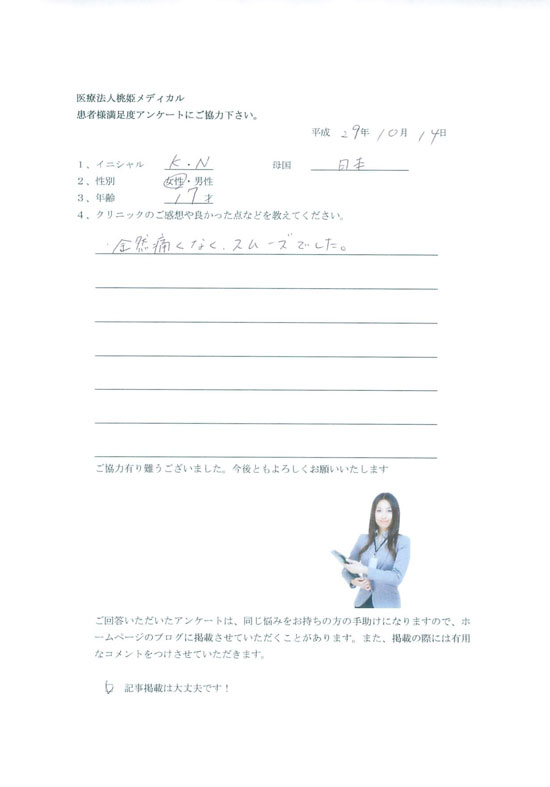 医療法人桃姫メディカル
患者様満足度アンケートにご協力下さい。
平成 29年 10月 14日
1、イニシャル K・N 母国 日本
2、性別 女性・男性
3、年齢 17才
4、クリニックのご感想や良かった点などを教えてください。
・全然痛くなく、スムーズでした。
ご協力有り難うございました。今後ともよろしくお願いいたします
ご回答いただいたアンケートは、同じ悩みをお持ちの方の手助けになりますので、ホ
ームページのブログに掲載させていただくことがあります。また、掲載の際には有用
なコメントをつけさせていただきます。
記事掲載は大丈夫です！